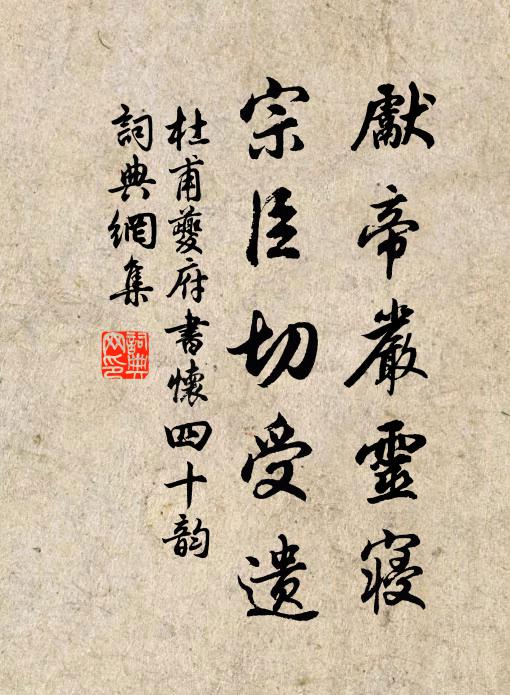 獻帝嚴靈寢
宗臣切受遺
杜甫夔府書懷四十韵
詞典網集
詞典网印